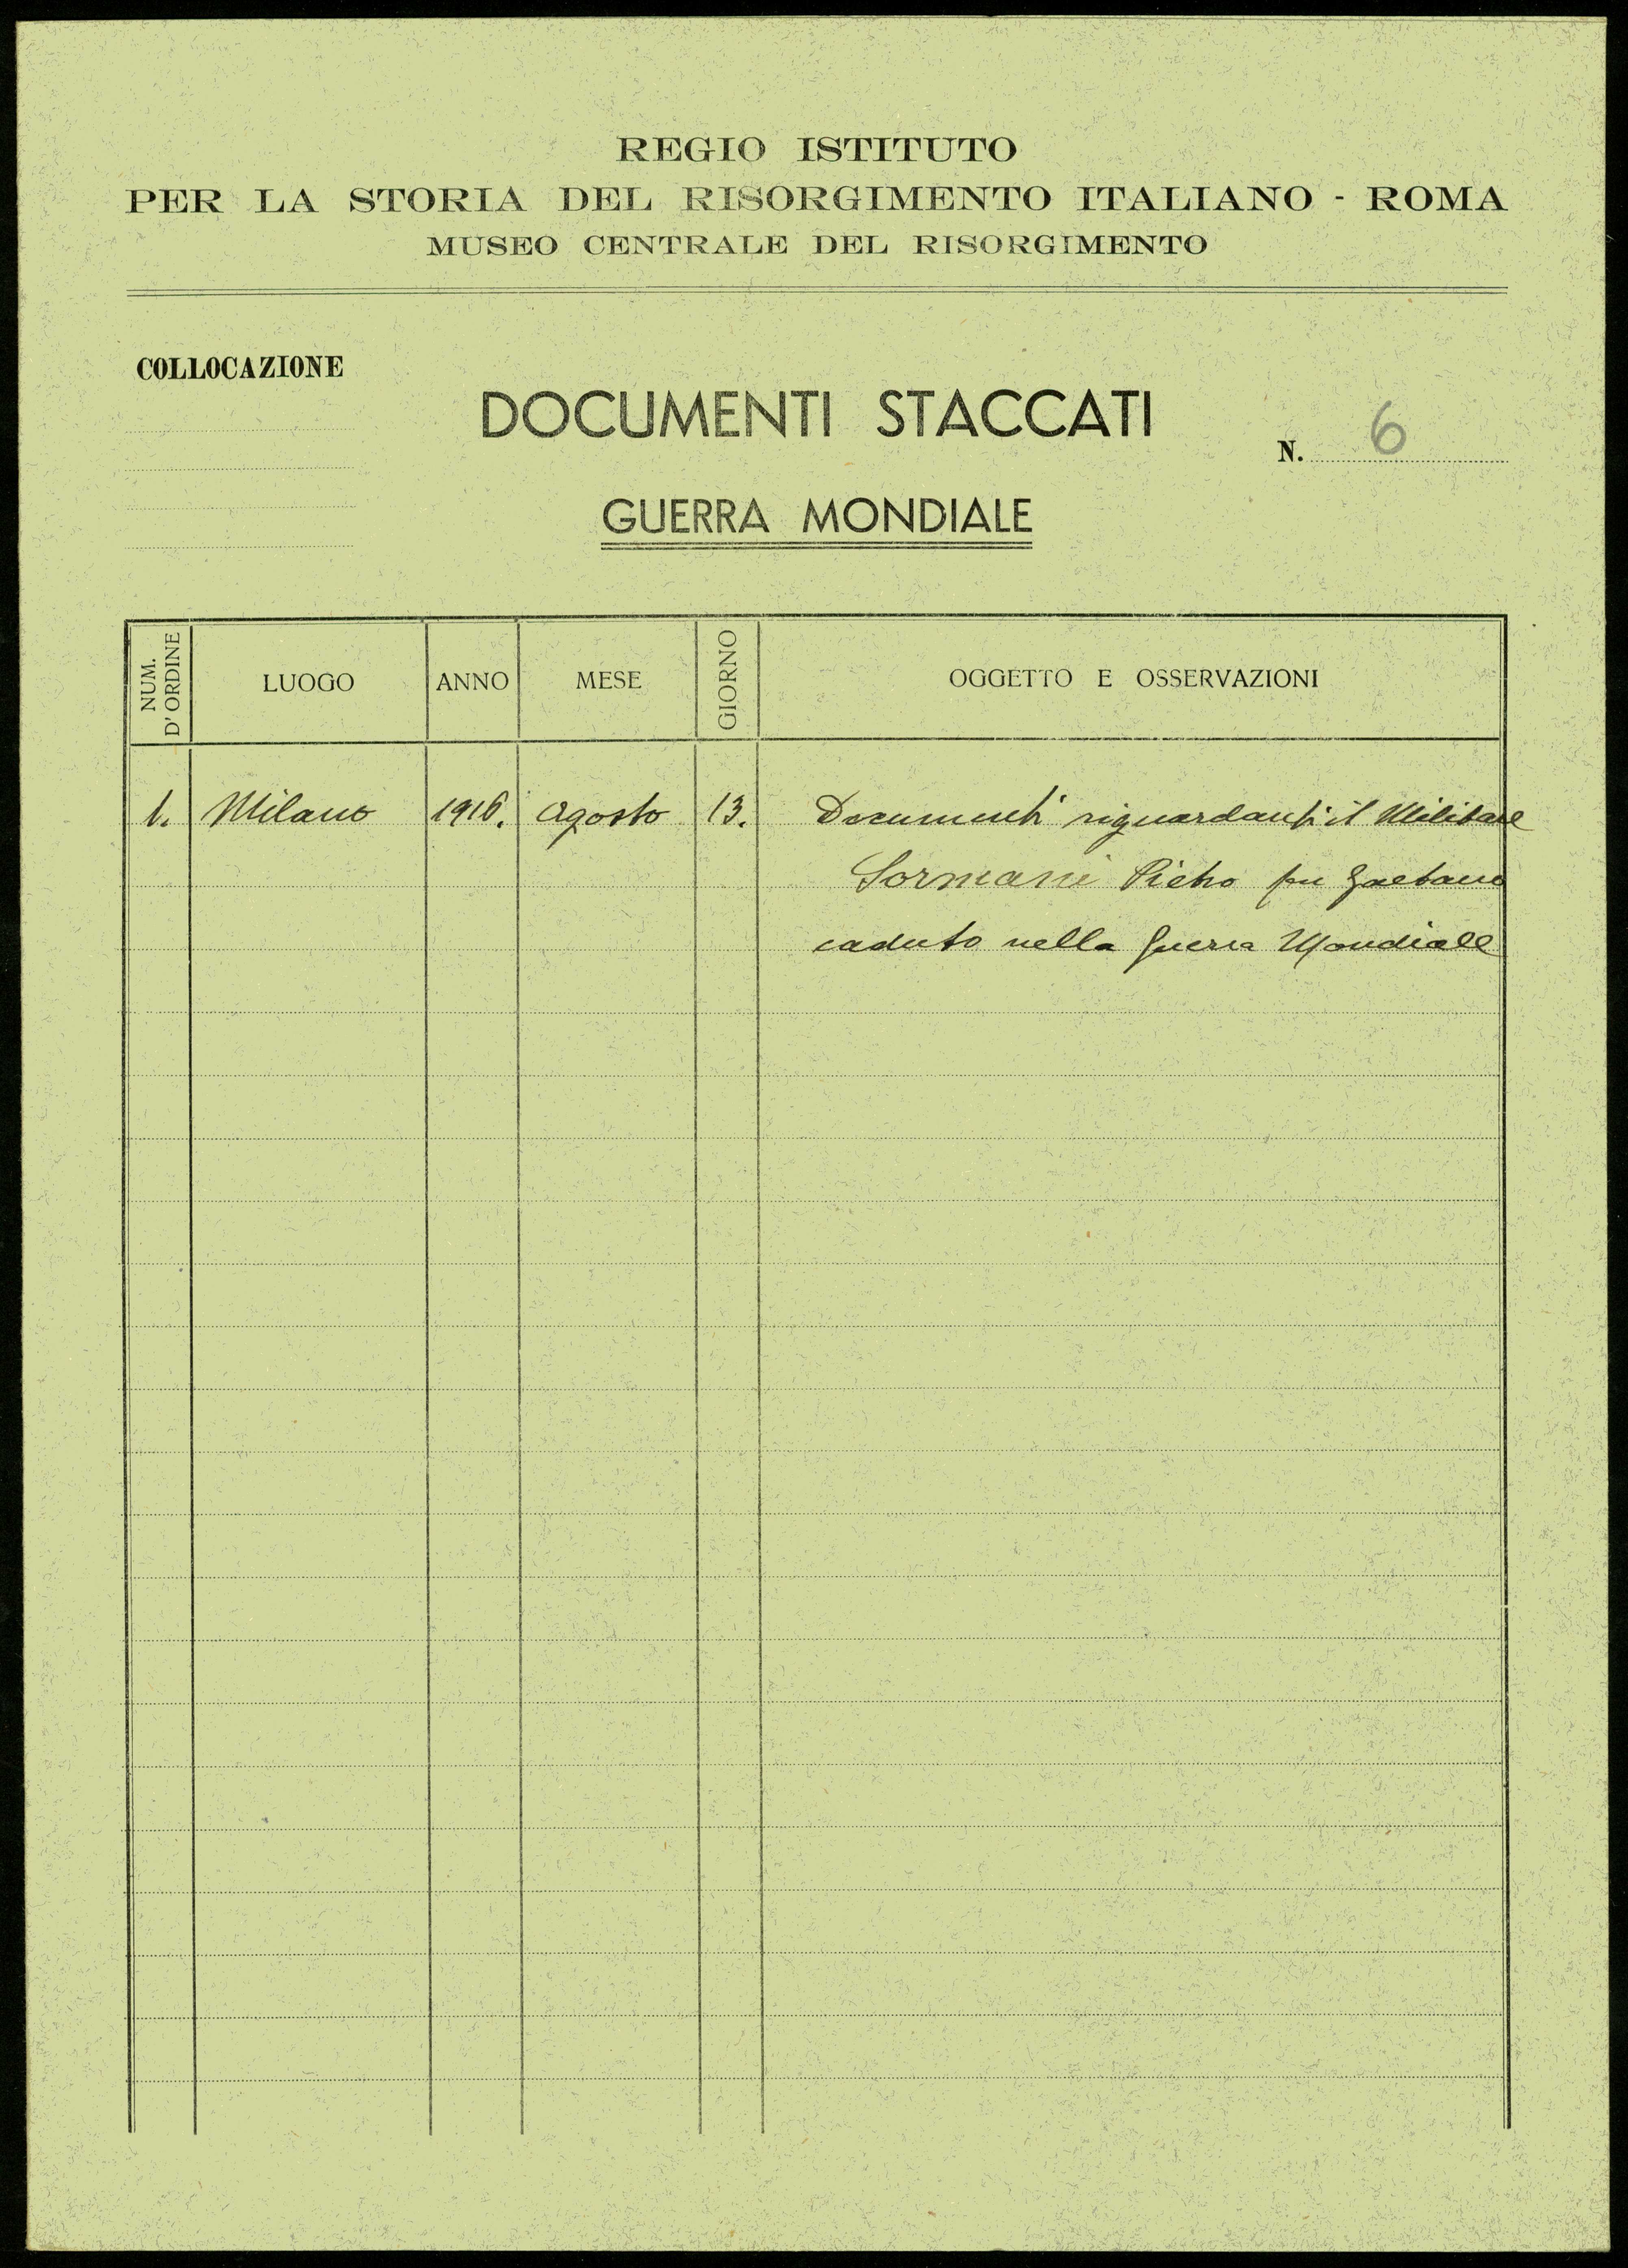 REGIO ISTITUTO
PER LA STORIA DEL RISORGIMENTO ITALIANO - ROMA
MUSEO CENTRALE DEL RISORGIMENTO
COLLOCAZIONE
DOCUMENTI STACCATI
N. 6
GUERRA MONDIALE
NUM. D'ORDINE LUOGO ANNO MESE GIORNO OGGETTO E OSSERVAZIONI
1. Milano 1916. Agosto 13. Documenti riguardanti il Militare
Sormani Pietro fu Gaetano
caduto nella Guerra Mondiale